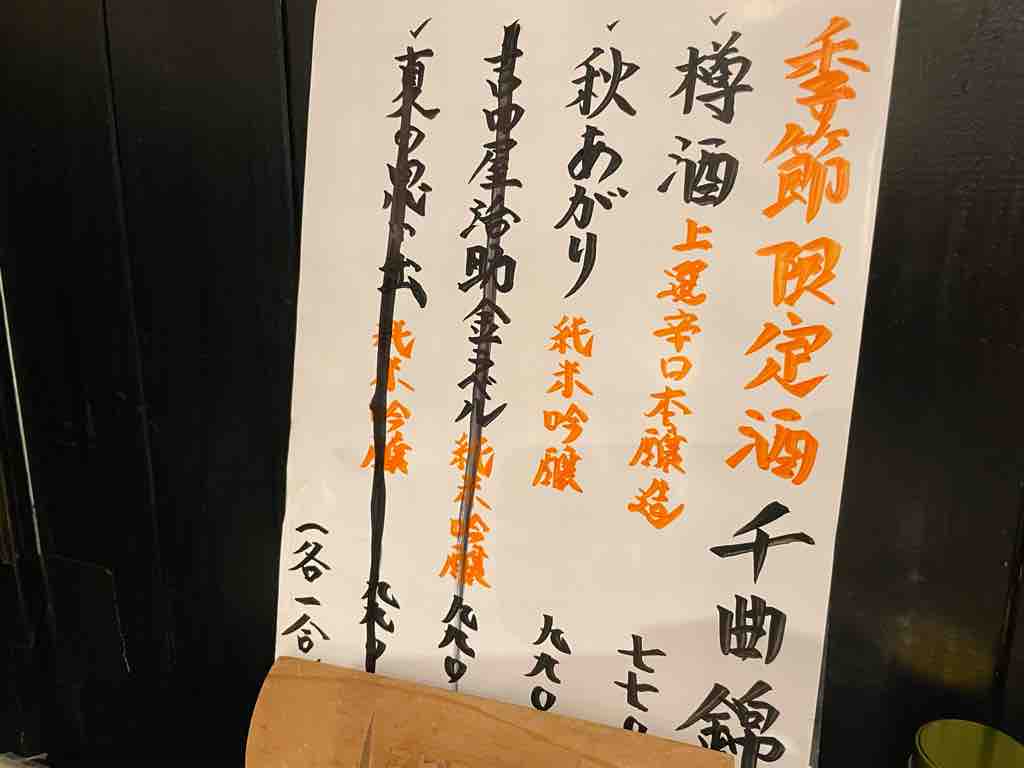 季節限定酒 千曲錦
樽酒 上選辛口本醸造 七七〇
秋あがり 純米吟醸 九九〇
吉田屋治助 金ラベル 純米吟醸 九九〇
東の 純米吟醸 九九〇
(各一合